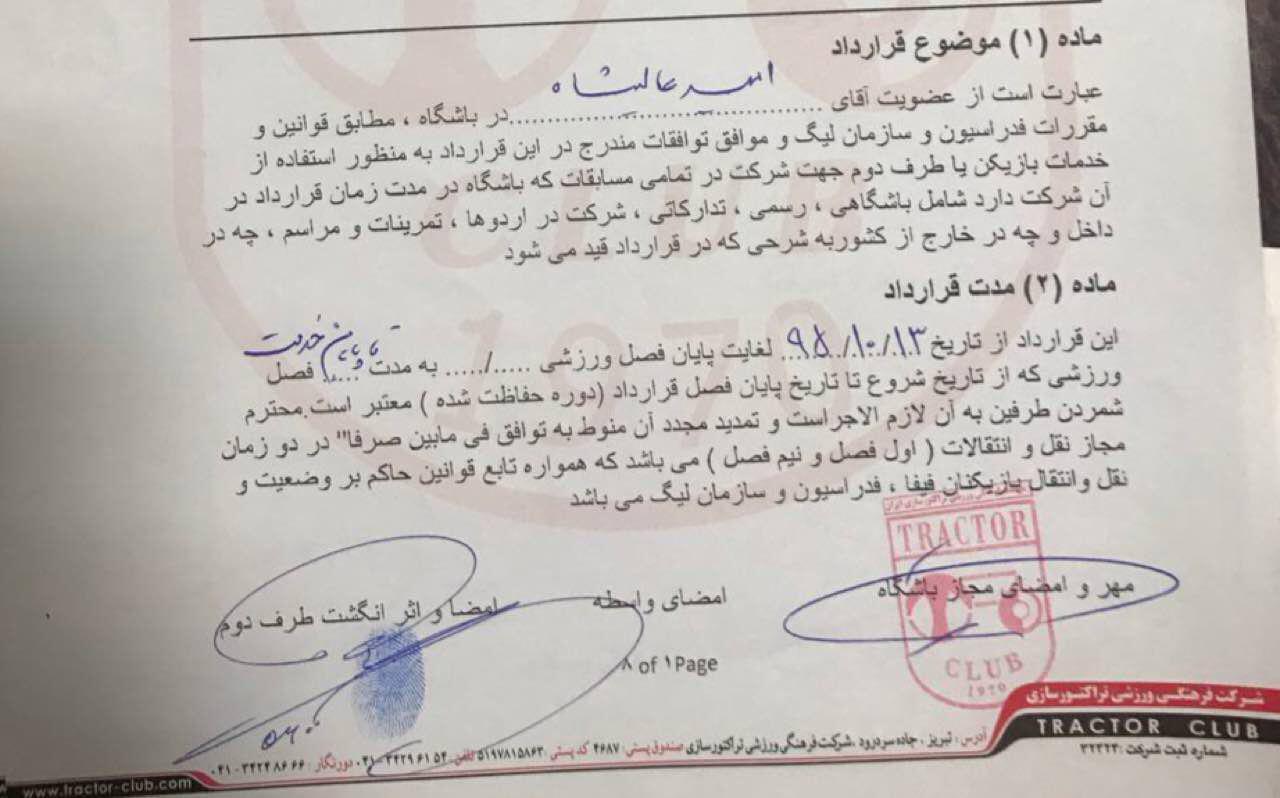 ماده (۱) موضوع قرارداد
عبارت است از عضویت آقای ........ امید عالیشاه ........ در باشگاه ، مطابق قوانین و
مقررات فدراسیون و سازمان لیگ و موافق توافقات مندرج در این قرارداد به منظور استفاده از
خدمات بازیکن یا طرف دوم جهت شرکت در تمامی مسابقات که باشگاه در مدت زمان قرارداد در
آن شرکت دارد شامل باشگاهی ، رسمی ، تدارکاتی ، شرکت در اردوها ، تمرینات و مراسم ، چه در
داخل و چه در خارج از کشوربه شرحی که در قرارداد قید می شود
ماده (۲) مدت قرارداد
این قرارداد از تاریخ ۹۵/۱۰/۱۳ لغایت پایان فصل ورزشی ...../..... به مدت تا پایان خدمت فصل
ورزشی که از تاریخ شروع تا تاریخ پایان فصل قرارداد (دوره حفاظت شده ) معتبر است.محترم
شمردن طرفین به آن لازم الاجراست و تمدید مجدد آن منوط به توافق فی مابین صرفا" در دو زمان
مجاز نقل و انتقالات ( اول فصل و نیم فصل ) می باشد که همواره تابع قوانین حاکم بر وضعیت و
نقل وانتقال بازیکنان فیفا ، فدراسیون و سازمان لیگ می باشد
TRACTOR
مهر و امضای مجاز باشگاه
امضای واسطه
امضا و اثر انگشت طرف دوم
CLUB
1970
۸ of ۱Page
شرکت فرهنگی ورزشی تراکتورسازی
TRACTOR CLUB
شماره ثبت شرکت : ۳۲۳۲۳
آدرس : تبریز ، جاده سردرود ،شرکت فرهنگی ورزشی تراکتورسازی صندوق پستی : ۴۶۸۷ کد پستی : ۵۱۹۷۸۱۵۸۶۳ تلفن : ۵۴ ۶۱ ۳۴۲۹ - ۰۴۱ دورنگار : ۶۶ ۸۶ ۳۴۲۴ - ۰۴۱
www.tractor-club.com